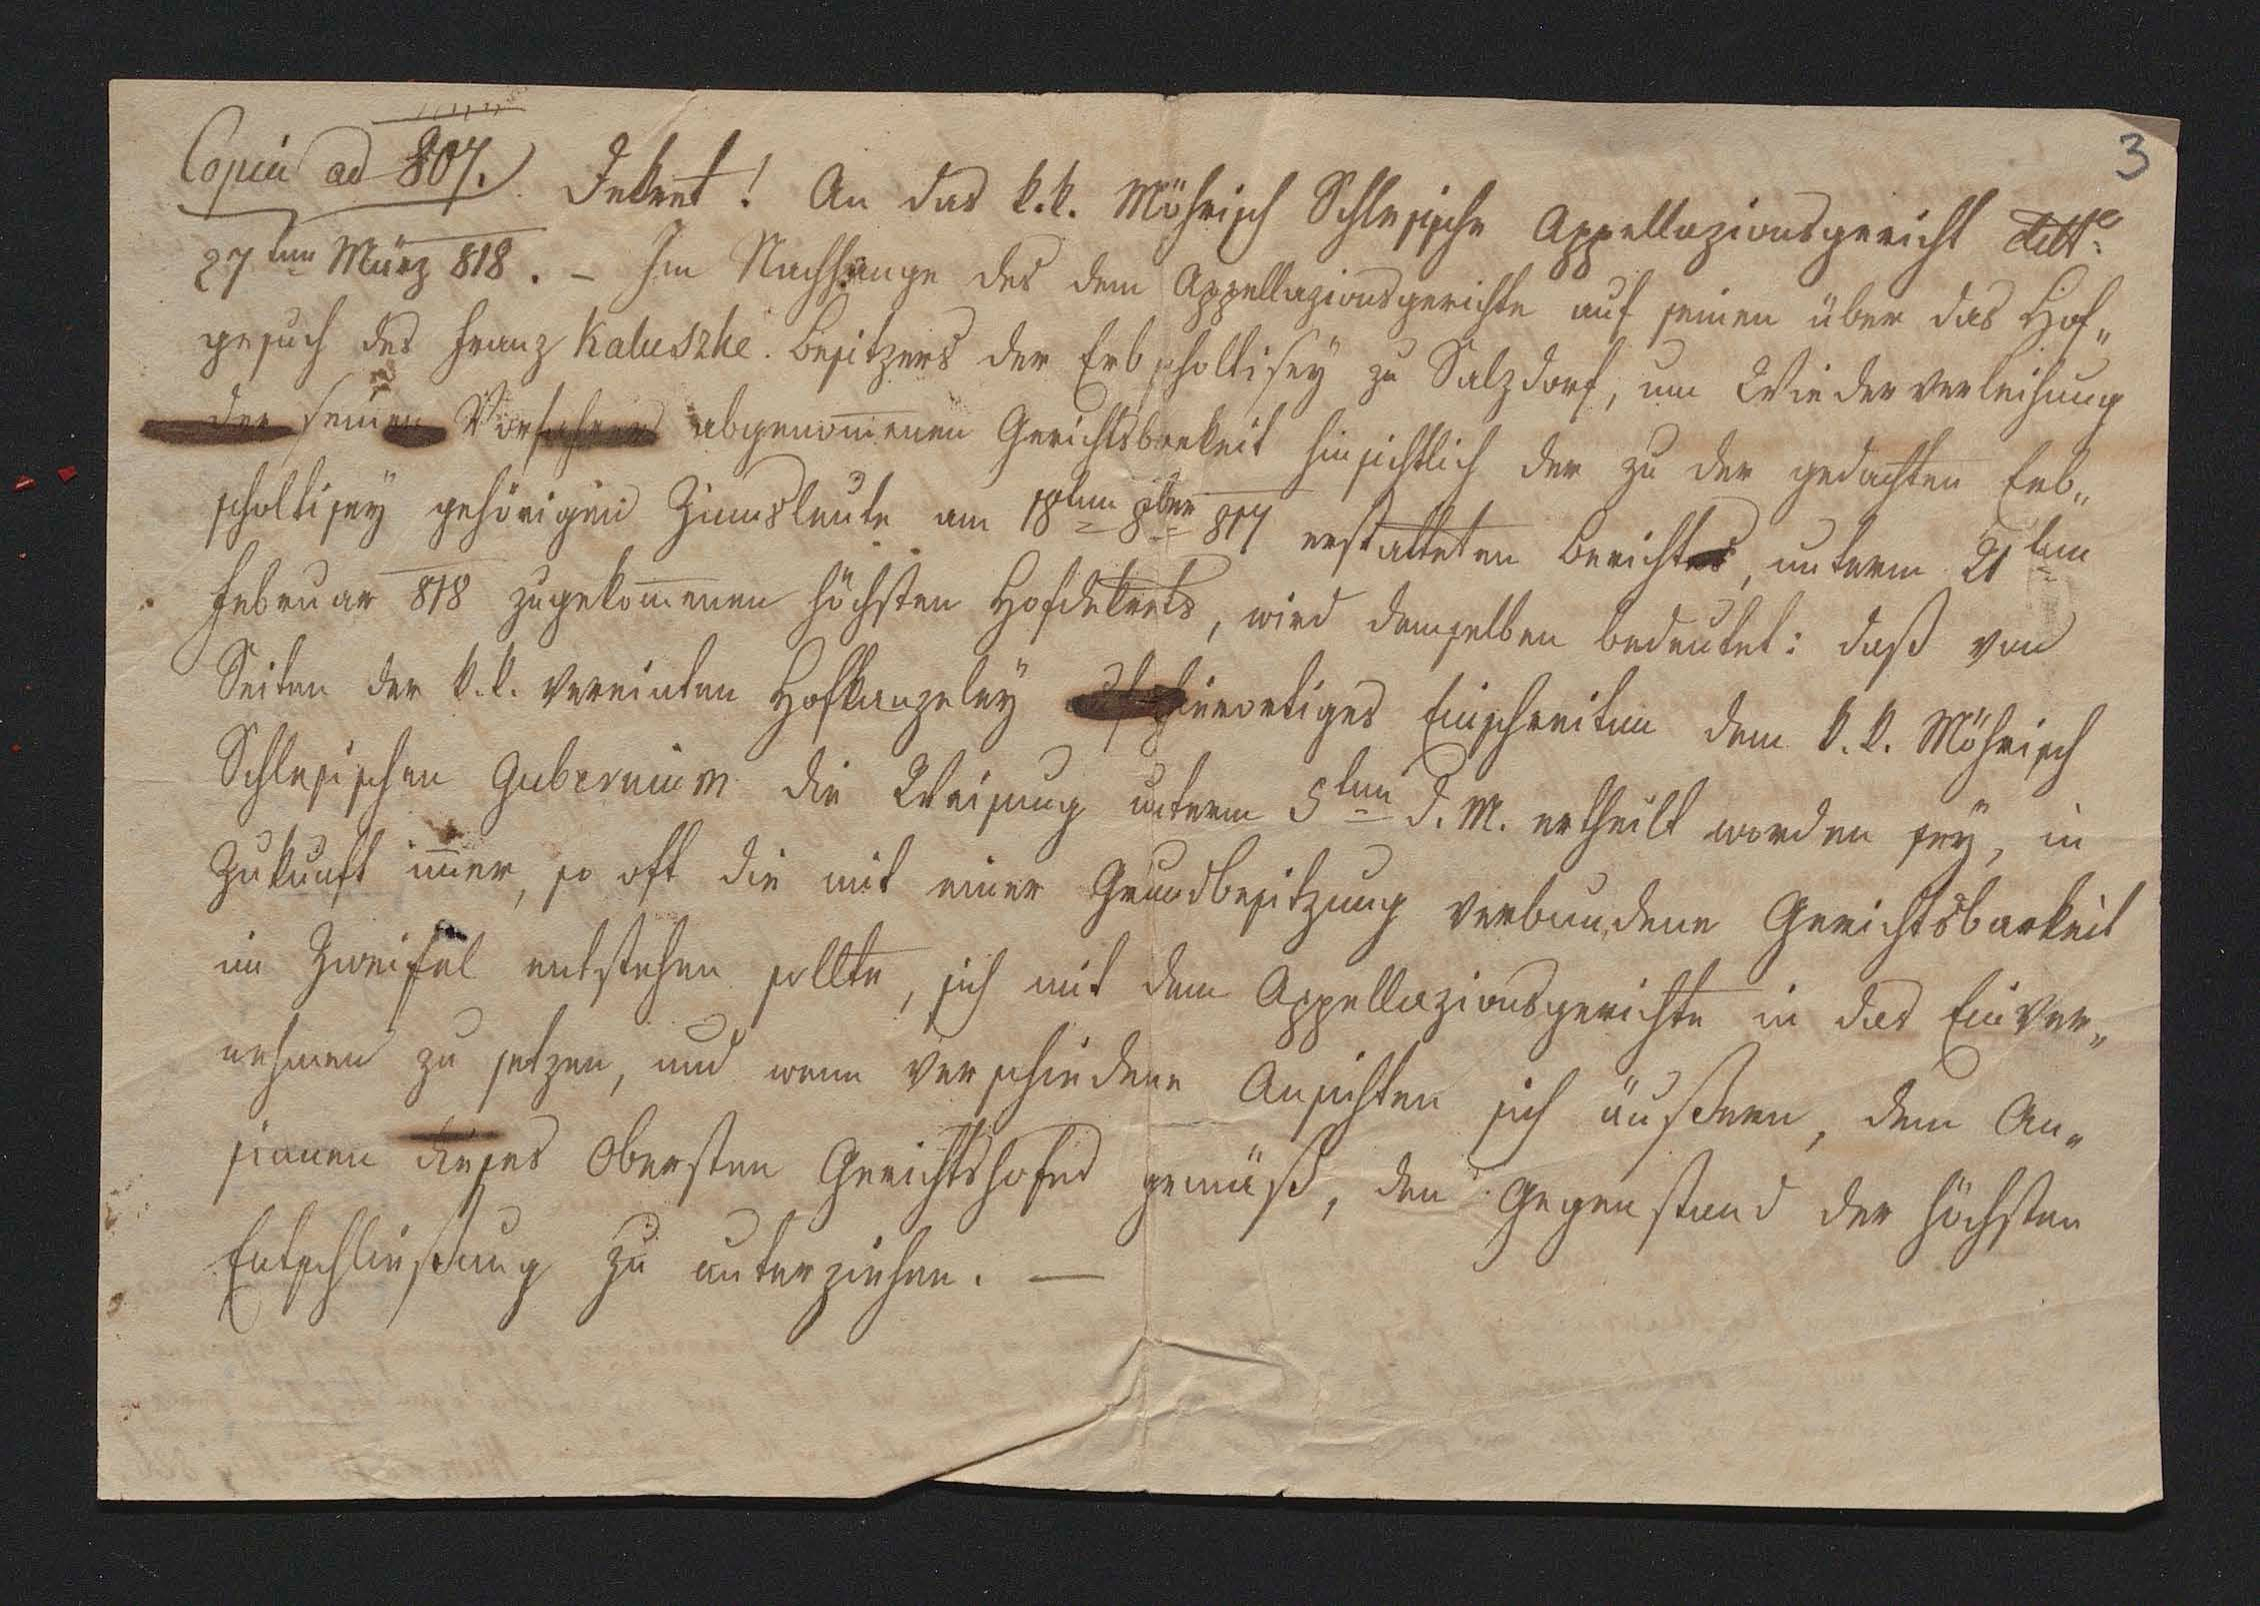 3
Copia ad 807. Dekret! An das k.k. Mährisch Schlesische Appellazionsgericht ddto
27ten März 818. – Im Nachhange des dem Appellazionsgerichte auf seinen über das Hof„
gesuch des Franz Kaluszke. Besitzers der Erbscholtisey zu Salzdorf, um Wiederverleihung
der seinen Vorfahren abgenom̄enen Gerichtsbarkeit hinsichtlich der zu der gedachten Erb„
scholtisey gehörigen Zinnsleute am 18ten 8ber 817 erstatteten Berichtes, unterm 21ten
Februar 818 zugekom̄enen höchsten Hofdekrets, wird demselben bedeutet: daß von
Seiten der k.k. vereinten Hofkanzeley auf hierortiges Einschreiten dem k.k. Mährisch
Schlesischen Gubernium die Weisung unterm 5ten d.M. ertheilt worden sey, in
Zukunft im̄er, so oft die mit einer Grundbesitzung verbundene Gerichtsbarkeit
in Zweifel entstehen sollte, sich mit dem Appellazionsgerichte in das Einver„
nehmen zu setzen, und wenn verschiedene Ansichten sich äußern, dem An„
sinnen dieses Obersten Gerichtshofes gemäß, den Gegenstand der höchsten
Entschließung zu unterziehen. —